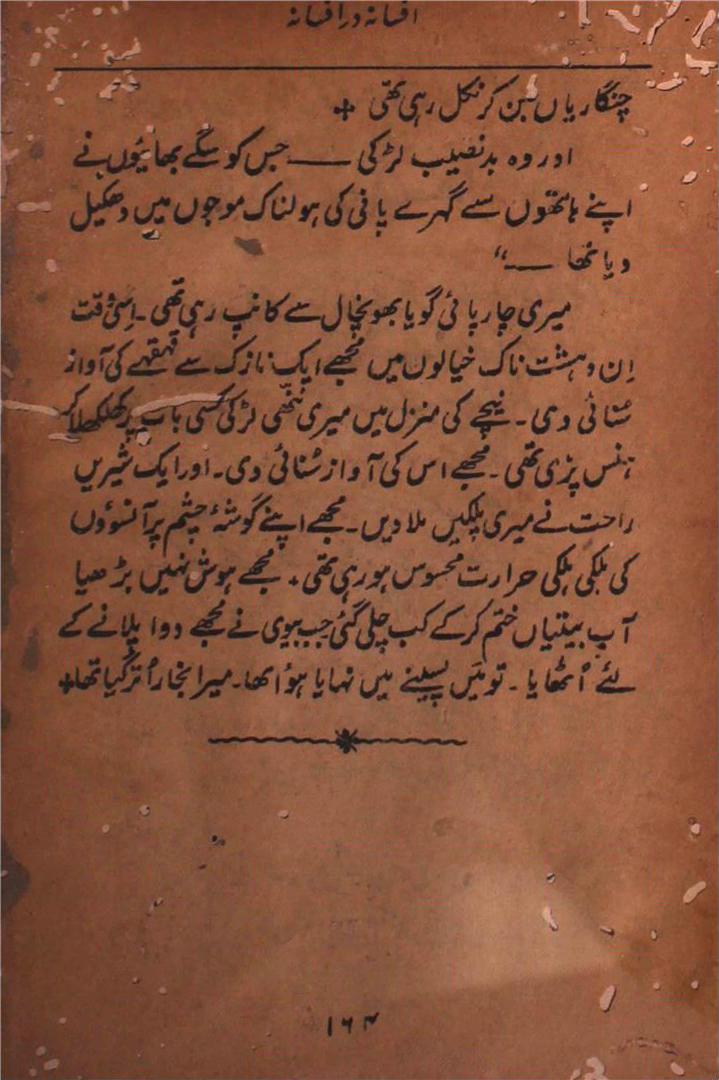 افسانہ در افسانہ
چنگاریاں بن کر نکل رہی تھی +
اور وہ بدنصیب لڑکی ــــ جس کو سگے بھائیوں نے
اپنے ہاتھوں سے گہرے پانی کی ہولناک موجوں میں دھکیل
دیا تھا ــــ“
میری چارپائی گویا بھونچال سے کانپ رہی تھی ۔ اِسی وقت
اِن دہشت ناک خیالوں میں مجھے ایک نازک سے قہقہے کی آواز
سُنائی دی ۔ نیچے کی منزل میں میری ننّھی لڑکی کسی بات پر کھلکھلا کر
ہنس پڑی تھی ۔ مجھے اس کی آواز سُنائی دی ۔ اور ایک شیریں
راحت نے میری پلکیں ملا دیں ۔ مجھے اپنے گوشۂ چشم پر آنسوؤں
کی ہلکی ہلکی حرارت محسوس ہو رہی تھی ۔ مجھے ہوش نہیں بڑھیا
آپ بیتیاں ختم کرکے کب چلی گئی جب بیوی نے مجھے دوا پلانے کے
لئے اُٹھایا ۔ تو مَیں پسینے میں نہایا ہوُا تھا ۔ میرا بخار اُتر گیا تھا +
۱۶۴